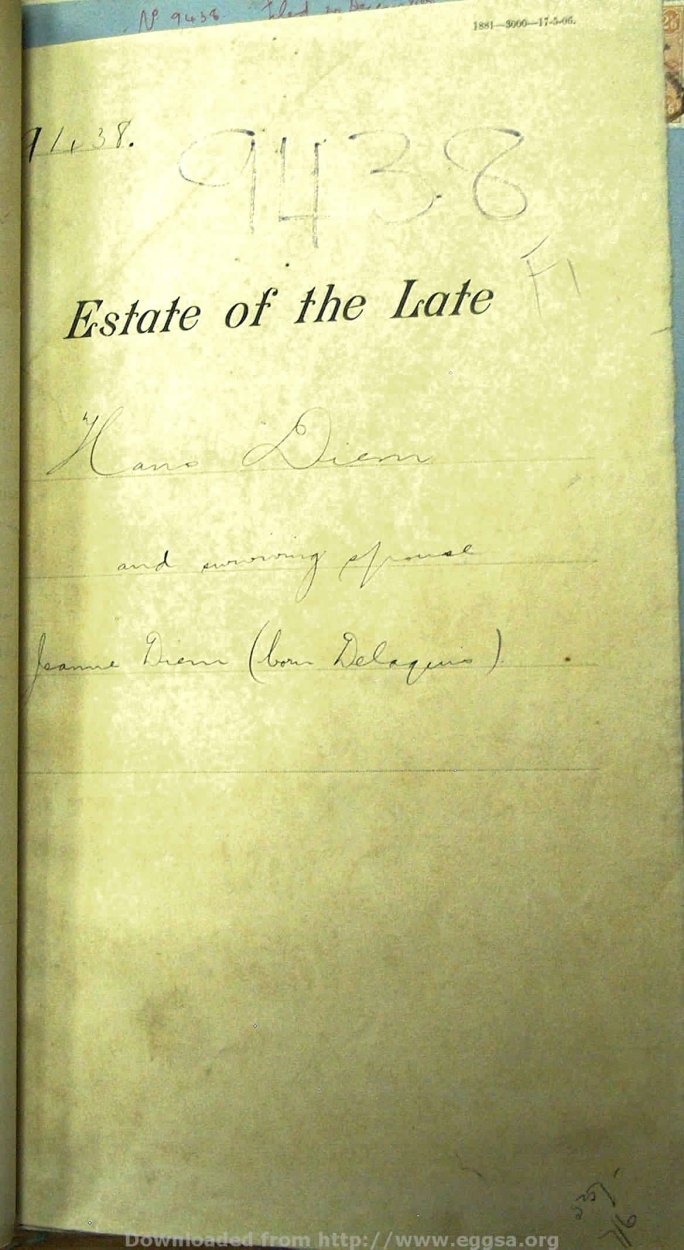 No 9438. Filed
1881—3000—17-5-06.
9438.
9438
Estate of the Late
Hans Diem
and surviving spouse
Jeanne Diem (born Delaquis)
Downloaded from http://www.eggsa.org